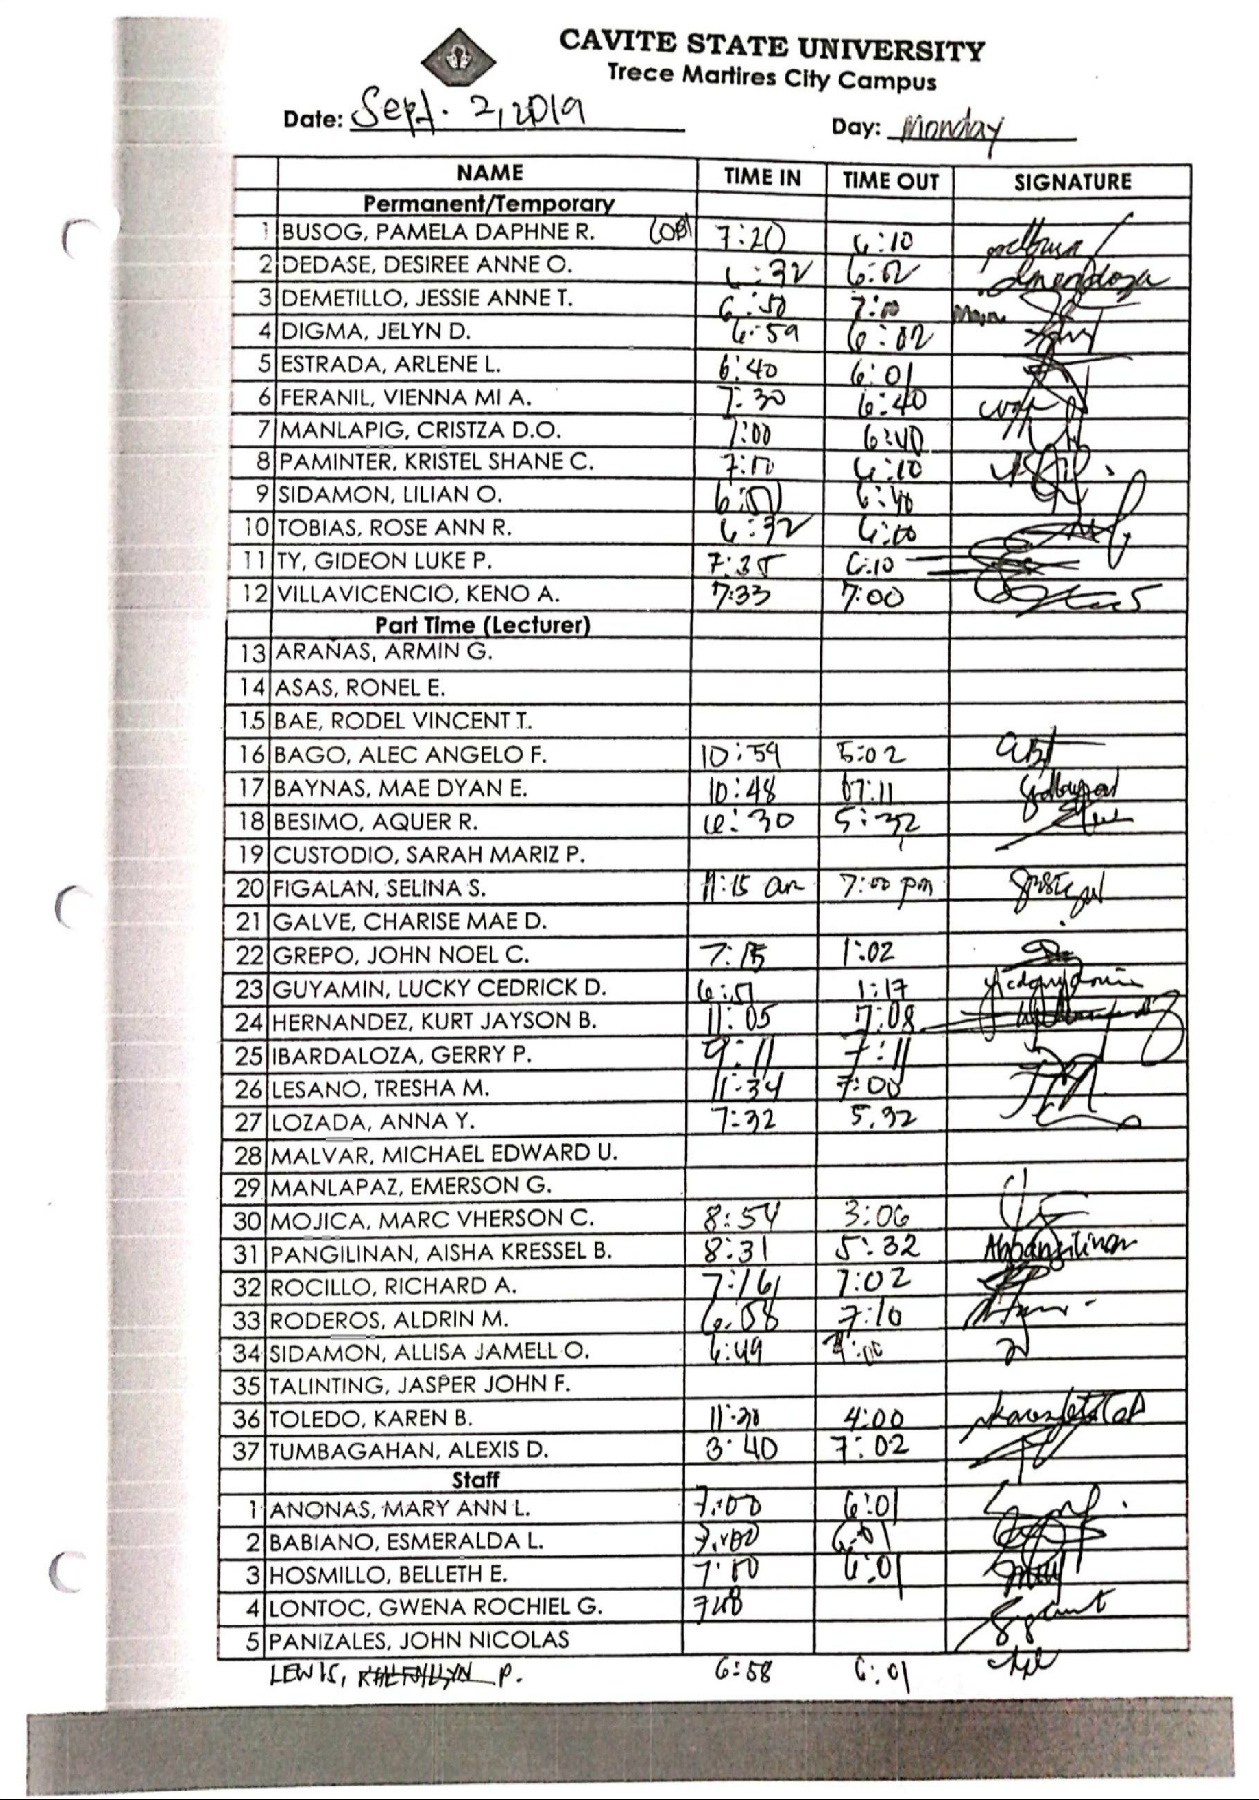 CAVITE STATE UNIVERSITY
Trece Martires City Campus
Date: Sept. 2, 2019 Day: Monday
NAME TIME IN TIME OUT SIGNATURE
Permanent/Temporary
1 BUSOG, PAMELA DAPHNE R. (OB) 7:20 6:10
2 DEDASE, DESIREE ANNE O. 6:32 6:02
3 DEMETILLO, JESSIE ANNE T. 6:50 7:00
4 DIGMA, JELYN D. 6:59 6:02
5 ESTRADA, ARLENE L. 6:40 6:01
6 FERANIL, VIENNA MI A. 7:30 6:40
7 MANLAPIG, CRISTZA D.O. 7:00 6:40
8 PAMINTER, KRISTEL SHANE C. 6:10
9 SIDAMON, LILIAN O. 6:40
10 TOBIAS, ROSE ANN R. 6:32 6:00
11 TY, GIDEON LUKE P. 7:35 6:10
12 VILLAVICENCIO, KENO A. 7:33 7:00
Part Time (Lecturer)
13 ARAÑAS, ARMIN G.
14 ASAS, RONEL E.
15 BAE, RODEL VINCENT T.
16 BAGO, ALEC ANGELO F. 10:59 5:02
17 BAYNAS, MAE DYAN E. 10:48 07:11
18 BESIMO, AQUER R. 6:30 5:32
19 CUSTODIO, SARAH MARIZ P.
20 FIGALAN, SELINA S. 11:15 am 7:00 pm
21 GALVE, CHARISE MAE D.
22 GREPO, JOHN NOEL C. 7:15 1:02
23 GUYAMIN, LUCKY CEDRICK D. 1:17
24 HERNANDEZ, KURT JAYSON B. 11:05 7:08
25 IBARDALOZA, GERRY P. 9:11 7:11
26 LESANO, TRESHA M. 11:34 7:00
27 LOZADA, ANNA Y. 7:32 5.32
28 MALVAR, MICHAEL EDWARD U.
29 MANLAPAZ, EMERSON G.
30 MOJICA, MARC VHERSON C. 8:54 3:06
31 PANGILINAN, AISHA KRESSEL B. 8:31 5:32
32 ROCILLO, RICHARD A. 7:16 7:02
33 RODEROS, ALDRIN M. 6:58 7:10
34 SIDAMON, ALLISA JAMELL O. 6:49 7:00
35 TALINTING, JASPER JOHN F.
36 TOLEDO, KAREN B. 11:30 4:00
37 TUMBAGAHAN, ALEXIS D. 3:40 7:02
Staff
1 ANONAS, MARY ANN L. 7:00 6:01
2 BABIANO, ESMERALDA L. 7:00 6:01
3 HOSMILLO, BELLETH E. 7:00 6:01
4 LONTOC, GWENA ROCHIEL G.
5 PANIZALES, JOHN NICOLAS
LEWIS, P. 6:58 6:01